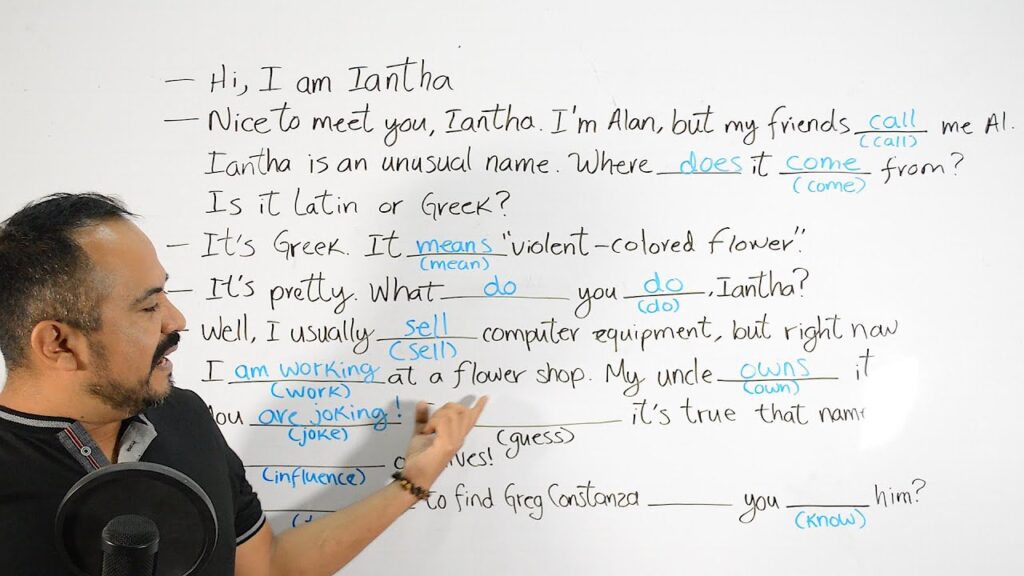 — Hi, I am Iantha
— Nice to meet you, Iantha. I'm Alan, but my friends call me Al.
(call)
Iantha is an unusual name. Where does it come from?
(come)
Is it Latin or Greek?
— It's Greek. It means "violent-colored flower".
(mean)
— It's pretty. What do you do, Iantha?
(do)
Well, I usually sell computer equipment, but right now
(sell)
I am working at a flower shop. My uncle owns it
(work) (own)
are joking! it's true that
(joke) (guess)
(influence)
to find Greg Constanza you him?
(know)